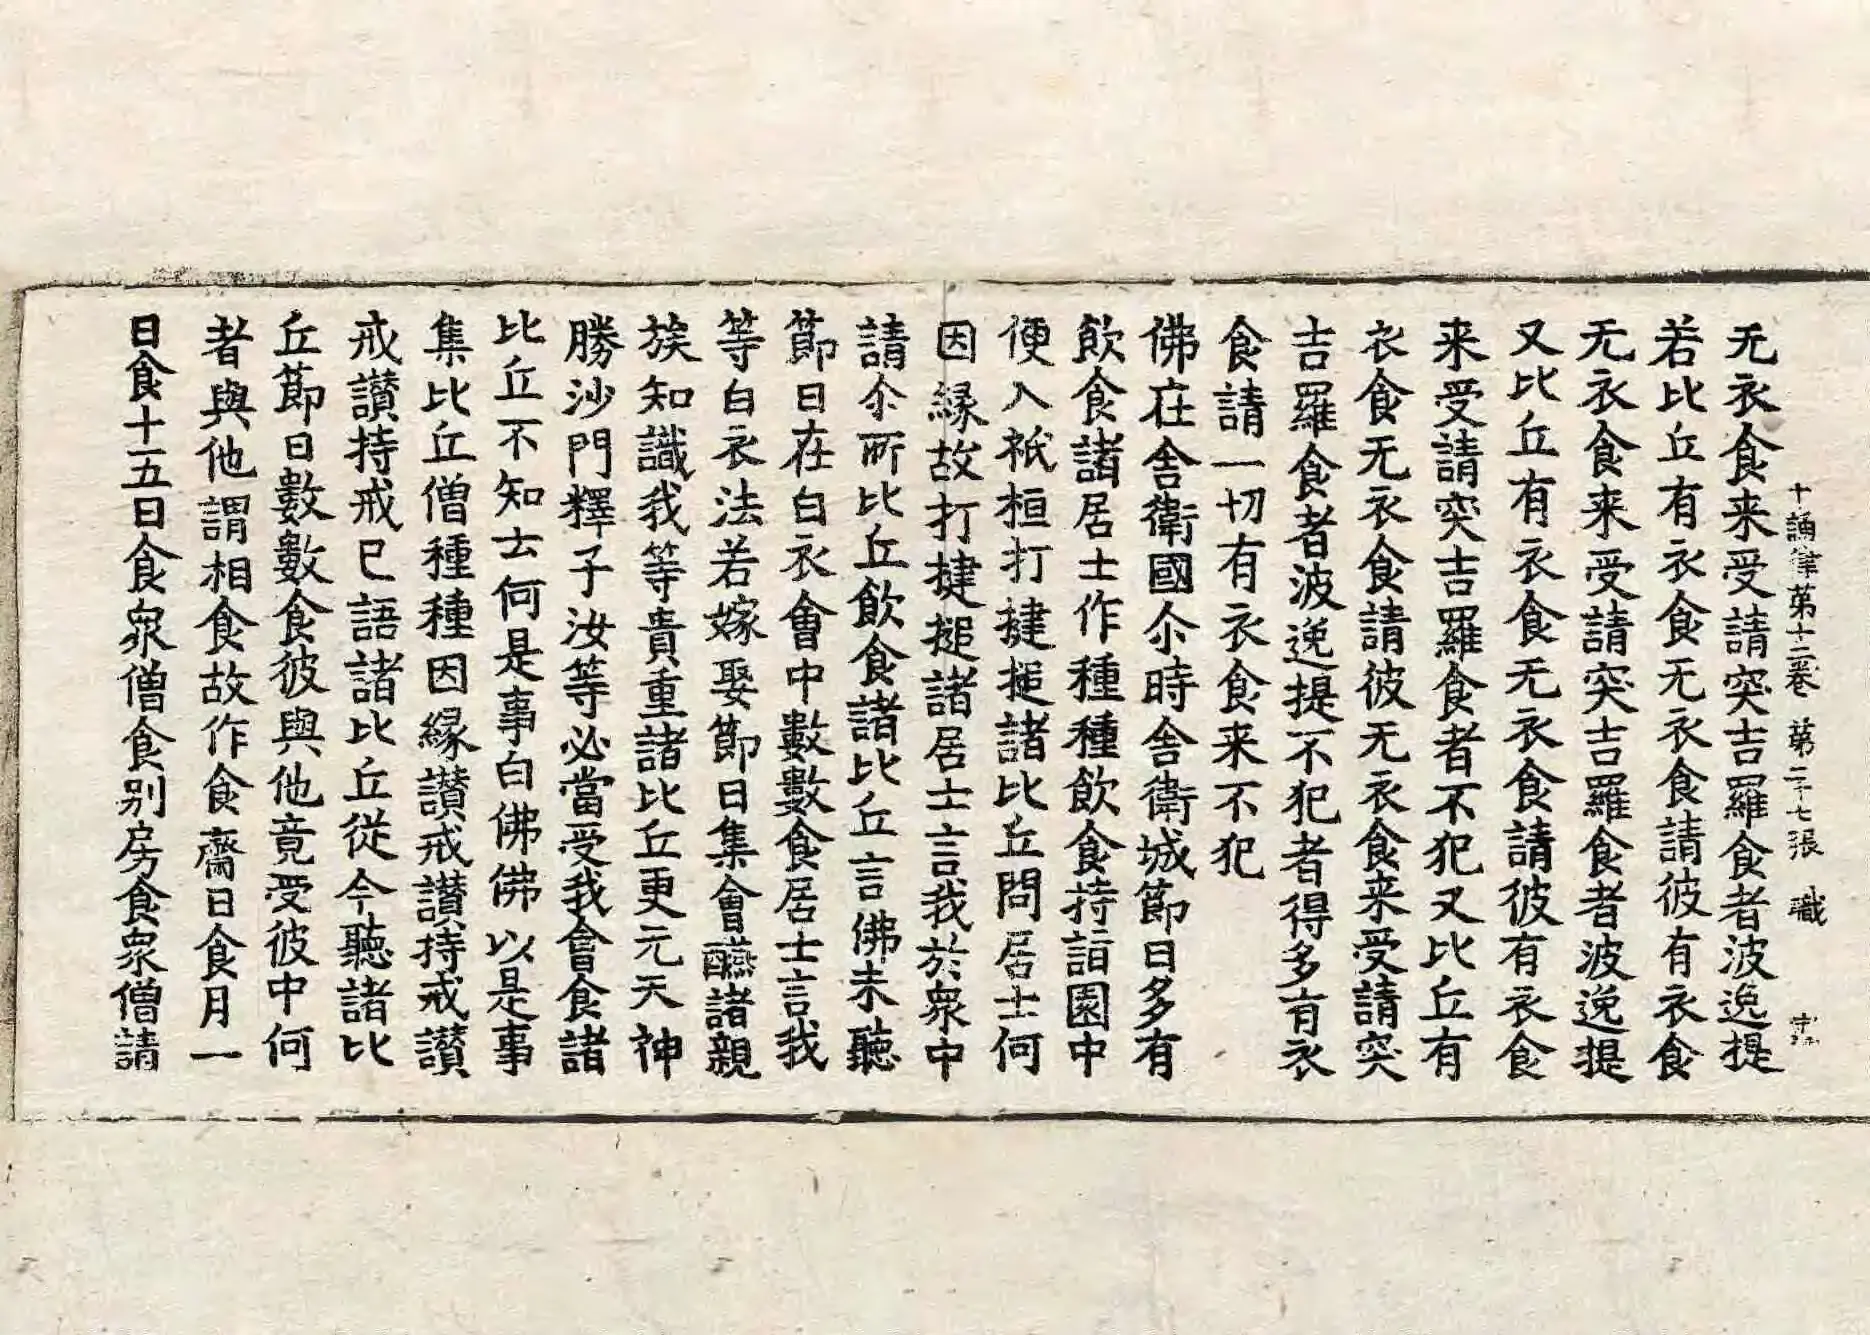 十誦律第十二卷 第二十七張 職
无衣食来受請突吉羅食者波逸提
若比丘有衣食无衣食請彼有衣食
无衣食来受請突吉羅食者波逸提
又比丘有衣食无衣食請彼有衣食
来受請突吉羅食者不犯又比丘有
衣食无衣食請彼无衣食来受請突
吉羅食者波逸提不犯者得多有衣
食請一切有衣食来不犯
佛在舍衛國尒時舍衛城節日多有
飲食諸居士作種種飲食持詣園中
便入祇桓打揵搥諸比丘問居士何
因緣故打揵搥諸居士言我於衆中
請尒所比丘飲食諸比丘言佛未聽
節日在白衣會中數數食居士言我
等白衣法若嫁娶節日集會醼諸親
族知識我等貴重諸比丘更元天神
勝沙門釋子汝等必當受我會食諸
比丘不知云何是事白佛佛以是事
集比丘僧種種因緣讚戒讚持戒讚
戒讚持戒已語諸比丘從今聽諸比
丘節日數數食彼與他竟受彼中何
者與他謂相食故作食齋日食月一
日食十五日食衆僧食别房食衆僧請